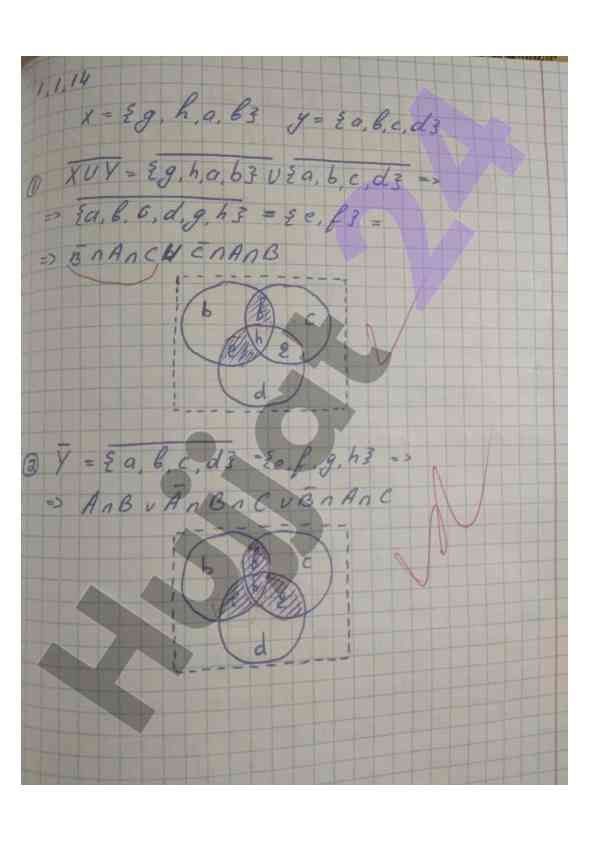 1.1.14
x = {g, h, a, b} y = {a, b, c, d}
① \overline{X∪Y} = \overline{{g, h, a, b} ∪ {a, b, c, d}} =>
=> \overline{{a, b, c, d, g, h}} = {e, f} =
=> B̄∩A∩C ∪ C̄∩A∩B
b c
h
d
② Ȳ = \overline{{a, b, c, d}} = {e, f, g, h} =>
=> A∩B ∪ Ā∩B∩C ∪ B̄∩A∩C
b c
d
Hujjat 24